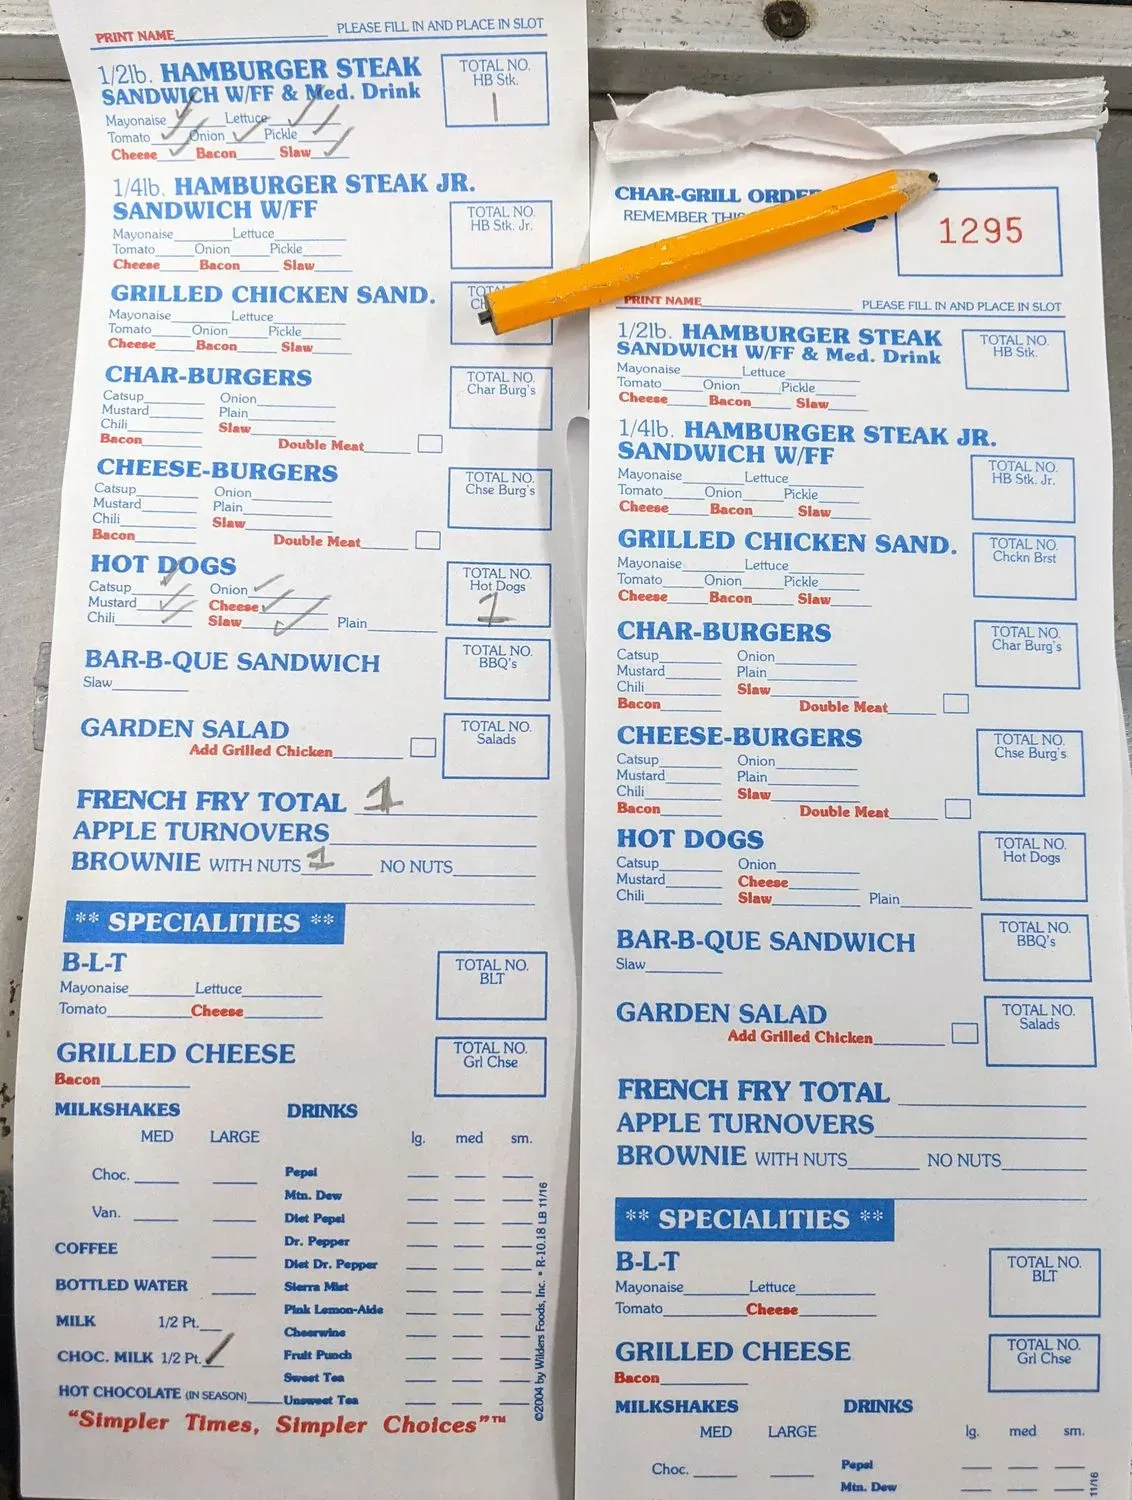 PRINT NAME PLEASE FILL IN AND PLACE IN SLOT
1/2lb. HAMBURGER STEAK
SANDWICH W/FF & Med. Drink
TOTAL NO.
HB Stk.
1
Mayonaise Lettuce
Tomato Onion Pickle
Cheese Bacon Slaw
1/4lb. HAMBURGER STEAK JR.
SANDWICH W/FF
TOTAL NO.
HB Stk. Jr.
Mayonaise Lettuce
Tomato Onion Pickle
Cheese Bacon Slaw
GRILLED CHICKEN SAND.
Mayonaise Lettuce
Tomato Onion Pickle
Cheese Bacon Slaw
CHAR-BURGERS
TOTAL NO.
Char Burg's
Catsup Onion
Mustard Plain
Chili Slaw
Bacon Double Meat
CHEESE-BURGERS
TOTAL NO.
Chse Burg's
Catsup Onion
Mustard Plain
Chili Slaw
Bacon Double Meat
HOT DOGS
TOTAL NO.
Hot Dogs
1
Catsup Onion
Mustard Cheese
Chili Slaw Plain
BAR-B-QUE SANDWICH
TOTAL NO.
BBQ's
Slaw
GARDEN SALAD
TOTAL NO.
Salads
Add Grilled Chicken
FRENCH FRY TOTAL 1
APPLE TURNOVERS
BROWNIE WITH NUTS 1 NO NUTS
** SPECIALITIES **
B-L-T
TOTAL NO.
BLT
Mayonaise Lettuce
Tomato Cheese
GRILLED CHEESE
TOTAL NO.
Grl Chse
Bacon
MILKSHAKES DRINKS
MED LARGE lg. med sm.
Choc. Pepsi
Mtn. Dew
Van. Diet Pepsi
Dr. Pepper
COFFEE Diet Dr. Pepper
BOTTLED WATER Sierra Mist
Pink Lemon-Aide
MILK 1/2 Pt. Cheerwine
CHOC. MILK 1/2 Pt. Fruit Punch
Sweet Tea
HOT CHOCOLATE (IN SEASON) Unsweet Tea
"Simpler Times, Simpler Choices"™
©2004 by Wilders Foods, Inc. • R-10.18 LB 11/16
CHAR-GRILL ORDER
REMEMBER THIS
1295
PRINT NAME PLEASE FILL IN AND PLACE IN SLOT
1/2lb. HAMBURGER STEAK
SANDWICH W/FF & Med. Drink
TOTAL NO.
HB Stk.
Mayonaise Lettuce
Tomato Onion Pickle
Cheese Bacon Slaw
1/4lb. HAMBURGER STEAK JR.
SANDWICH W/FF
TOTAL NO.
HB Stk. Jr.
Mayonaise Lettuce
Tomato Onion Pickle
Cheese Bacon Slaw
GRILLED CHICKEN SAND.
TOTAL NO.
Chckn Brst
Mayonaise Lettuce
Tomato Onion Pickle
Cheese Bacon Slaw
CHAR-BURGERS
TOTAL NO.
Char Burg's
Catsup Onion
Mustard Plain
Chili Slaw
Bacon Double Meat
CHEESE-BURGERS
TOTAL NO.
Chse Burg's
Catsup Onion
Mustard Plain
Chili Slaw
Bacon Double Meat
HOT DOGS
TOTAL NO.
Hot Dogs
Catsup Onion
Mustard Cheese
Chili Slaw Plain
BAR-B-QUE SANDWICH
TOTAL NO.
BBQ's
Slaw
GARDEN SALAD
TOTAL NO.
Salads
Add Grilled Chicken
FRENCH FRY TOTAL
APPLE TURNOVERS
BROWNIE WITH NUTS NO NUTS
** SPECIALITIES **
B-L-T
TOTAL NO.
BLT
Mayonaise Lettuce
Tomato Cheese
GRILLED CHEESE
TOTAL NO.
Grl Chse
Bacon
MILKSHAKES DRINKS
MED LARGE lg. med sm.
Choc. Pepsi
Mtn. Dew
11/16